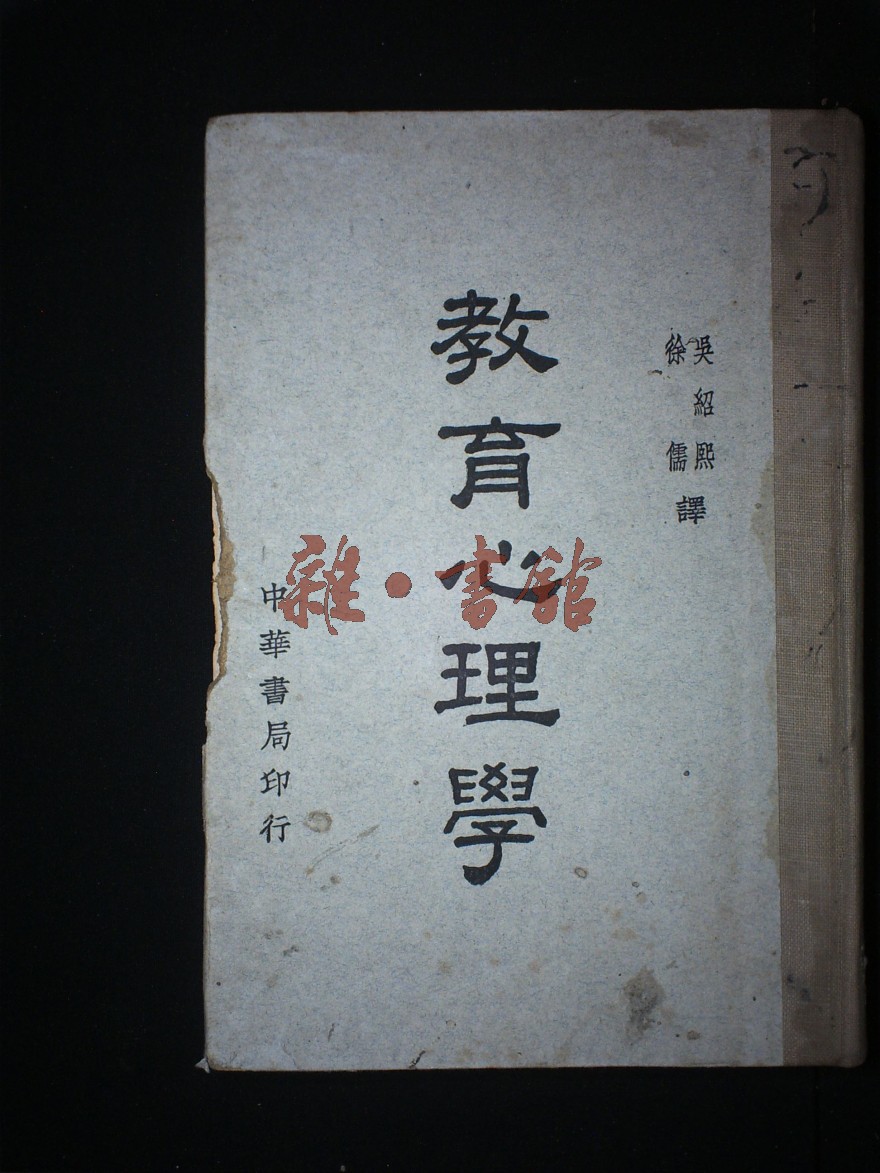 吳紹熙
徐儒
譯
教育心理學
中華書局印行
雜·書館